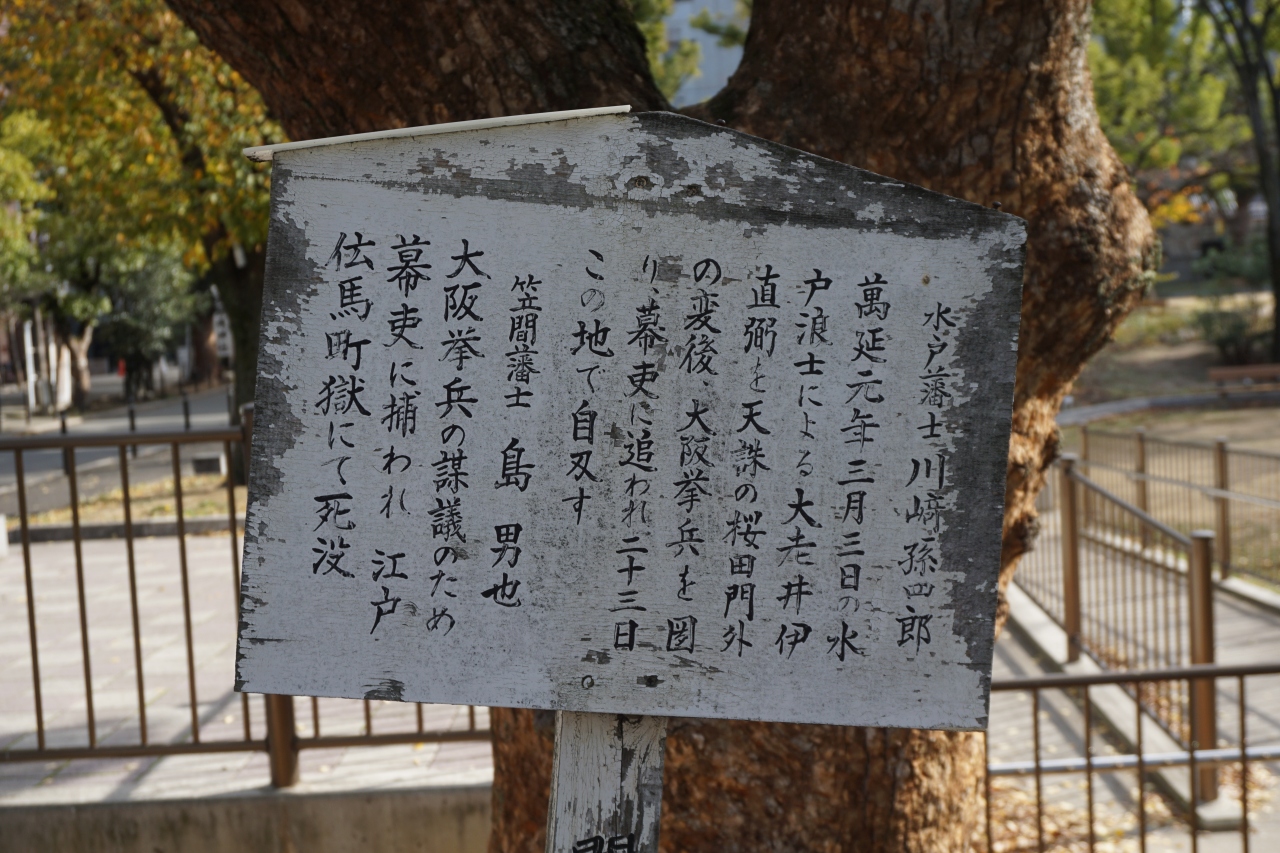 水戸藩士 川﨑孫四郎
萬延元年三月三日の水
戸浪士による大老井伊
直弼を天誅の桜田門外
の変後、大阪挙兵を図
り、幕吏に追われ二十三日
この地で自刃す
笠間藩士 島 男也
大阪挙兵の謀議のため
幕吏に捕われ 江戸
伝馬町獄にて死没